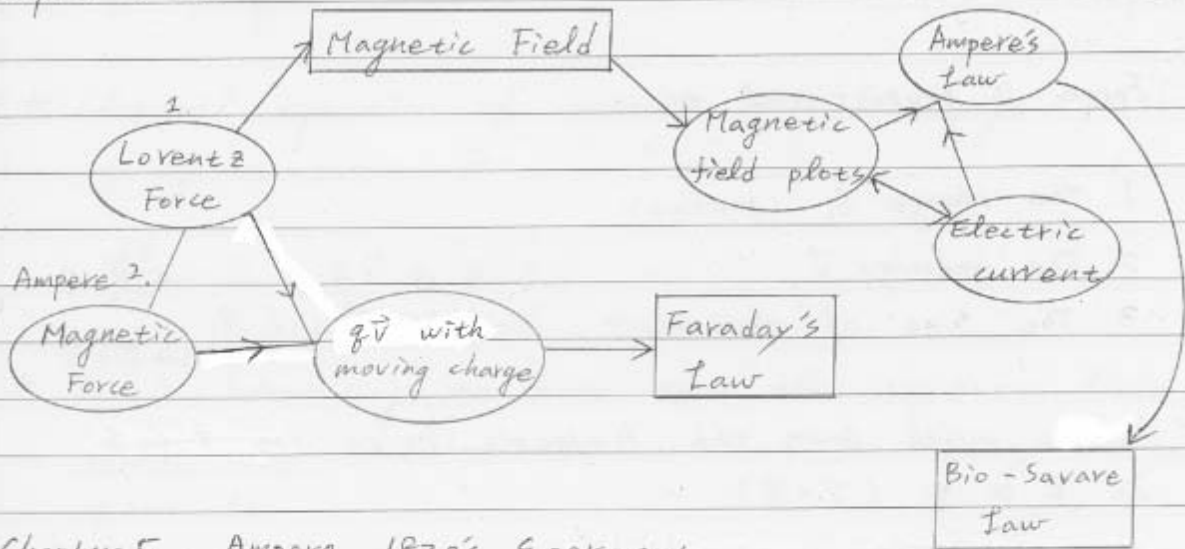 Magnetic Field
Ampere's
Law
1.
Magnetic
field plots
Lorentz
Force
Electric
current
Ampere 2.
Magnetic
Force
qv⃗ with
moving charge
Faraday's
Law
Bio - Savare
Law
Chapter 5 Ampere